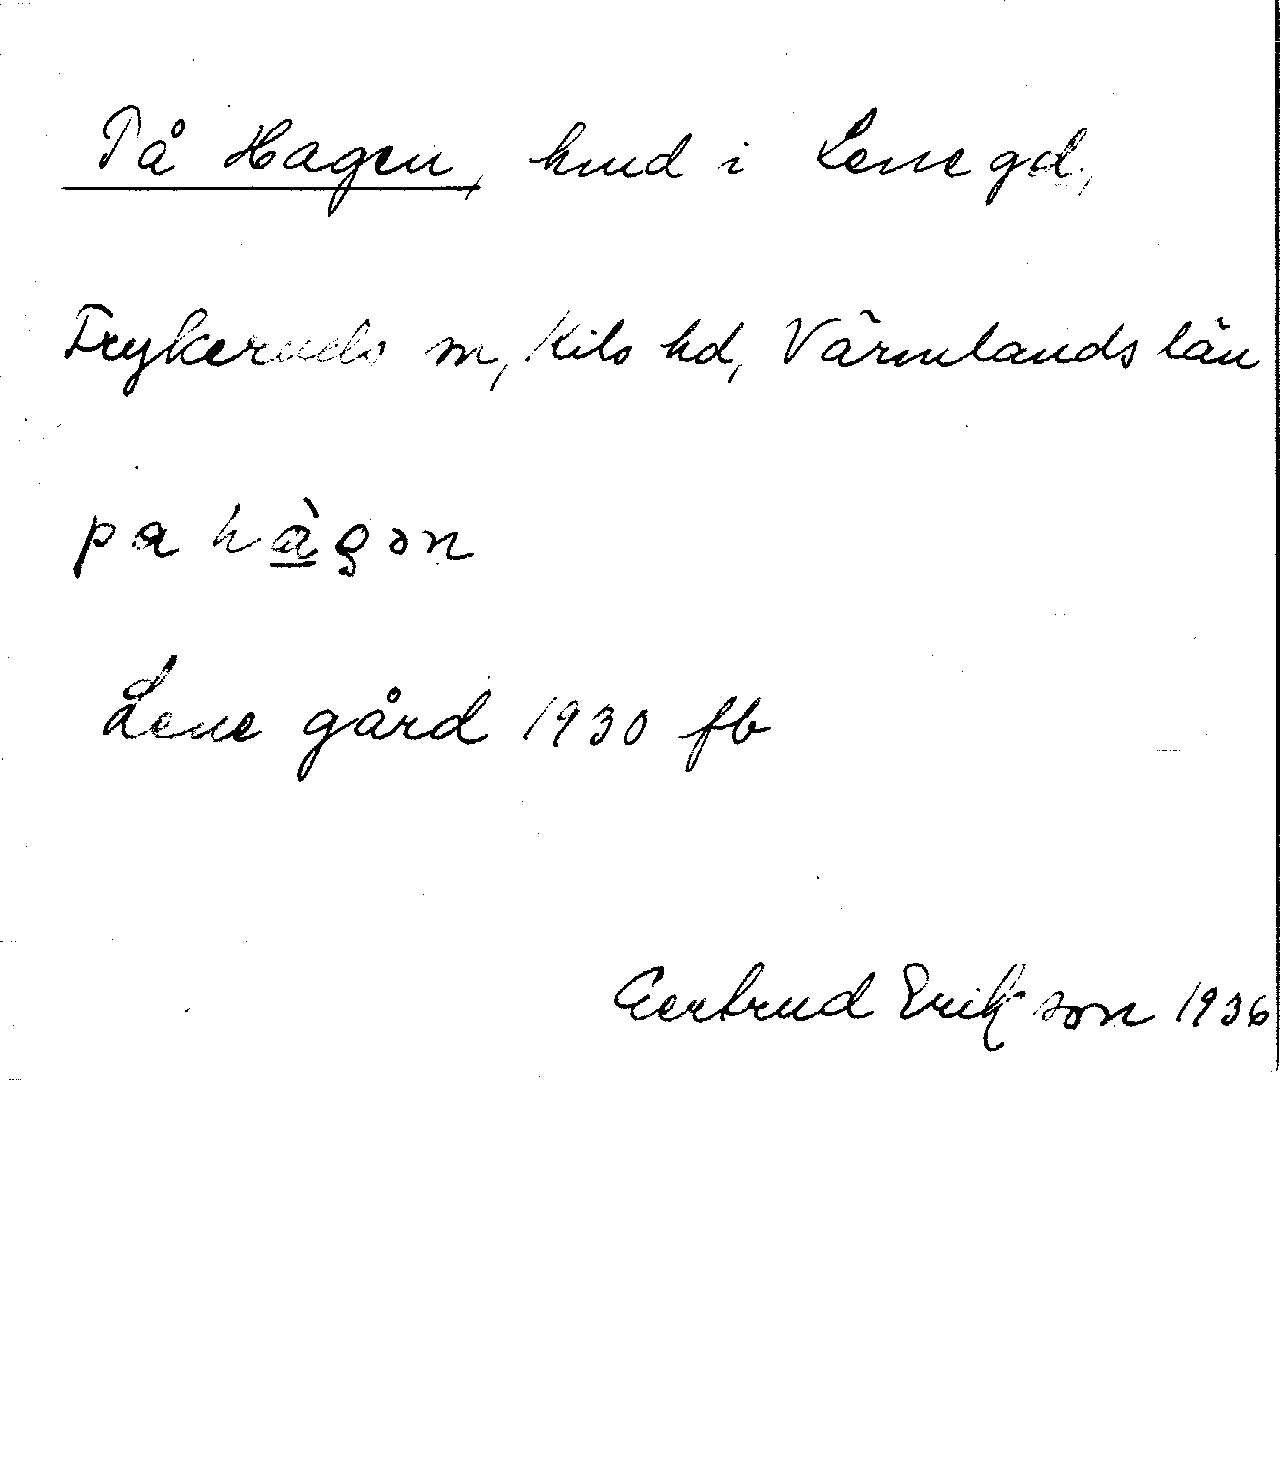 På Hagen, hmd i Lene gd.,
Frykeruds sn, Kils hd, Värmlands län
pa hàgən
Lene gård 1930 fb
Gertrud Erikson 1936